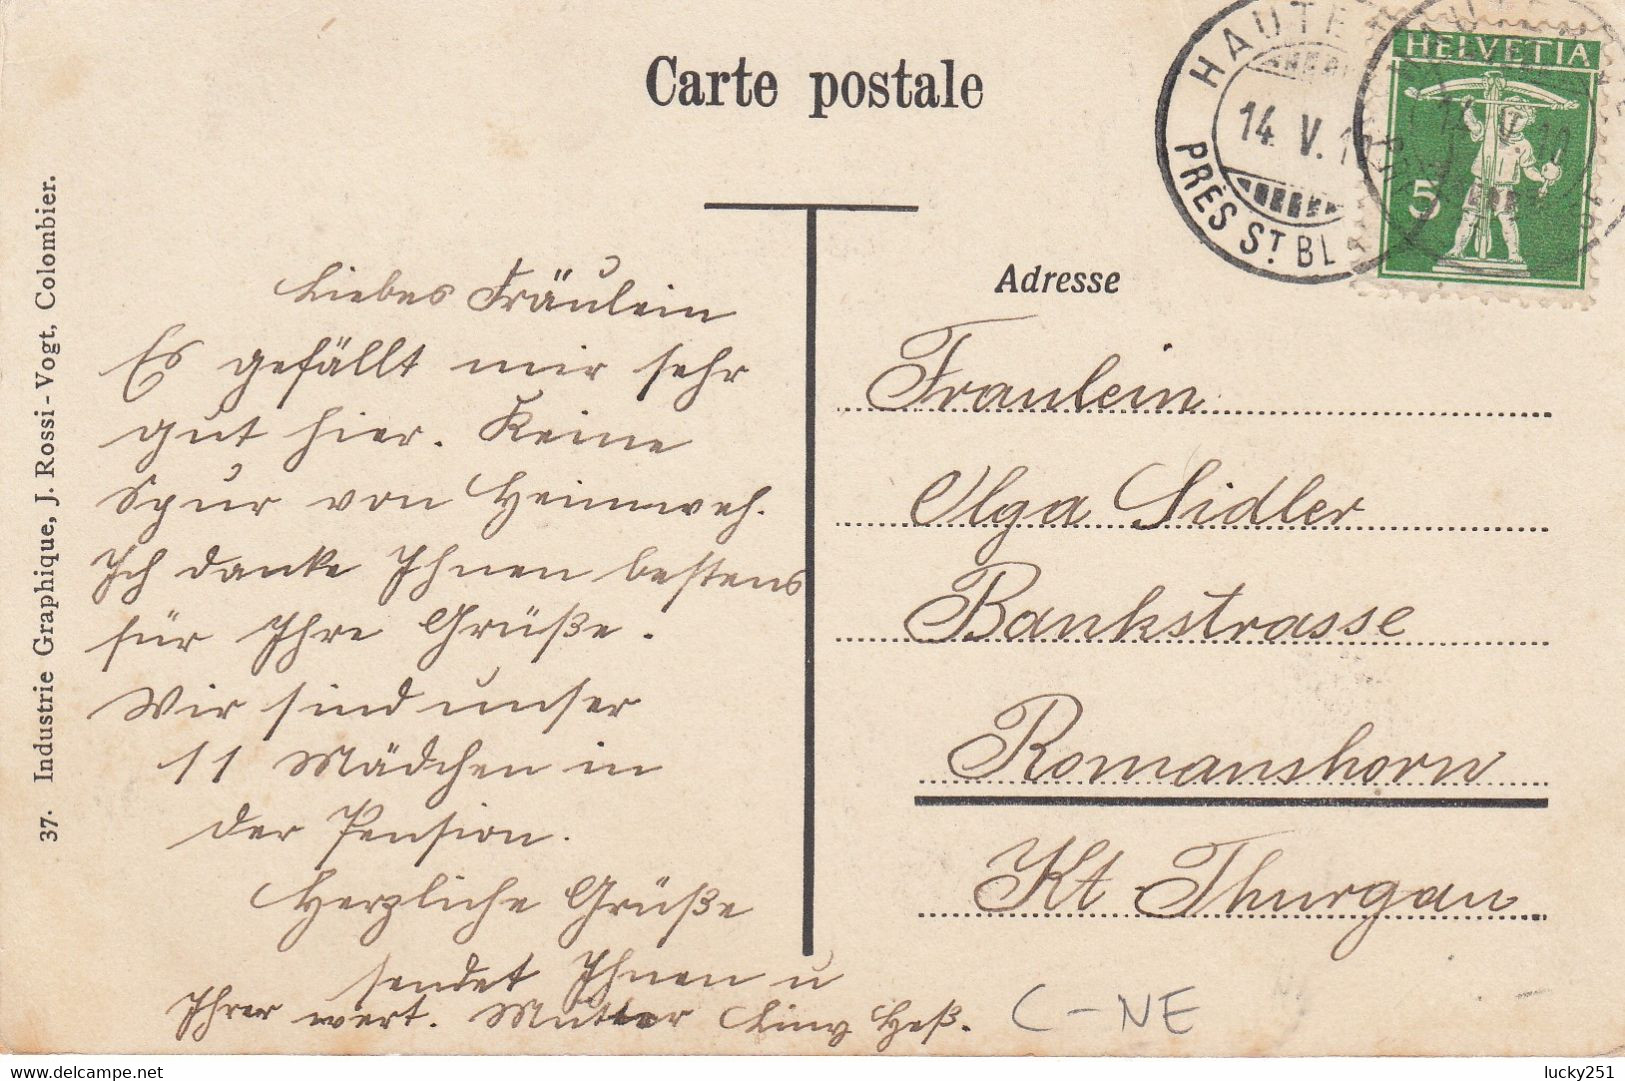 Carte postale
HAUTE
14. V. 1
PRÈS ST BL
HELVETIA
5
37. Industrie Graphique, J. Rossi-Vogt, Colombier.
Liebes Fräulein
Es gefällt mir sehr
gut hier. Keine
Spur von Heimweh.
Ich danke Ihnen bestens
für Ihre Grüße.
Wir sind unser
11 Mädchen in
der Pension.
Herzliche Grüße
sendet Ihnen u
Ihrer wert. Mutter Heß.
Adresse
Fraulein
Olga Sidler
Bankstrasse
Romanshorn
Kt Thurgau
C-NE
lucky251